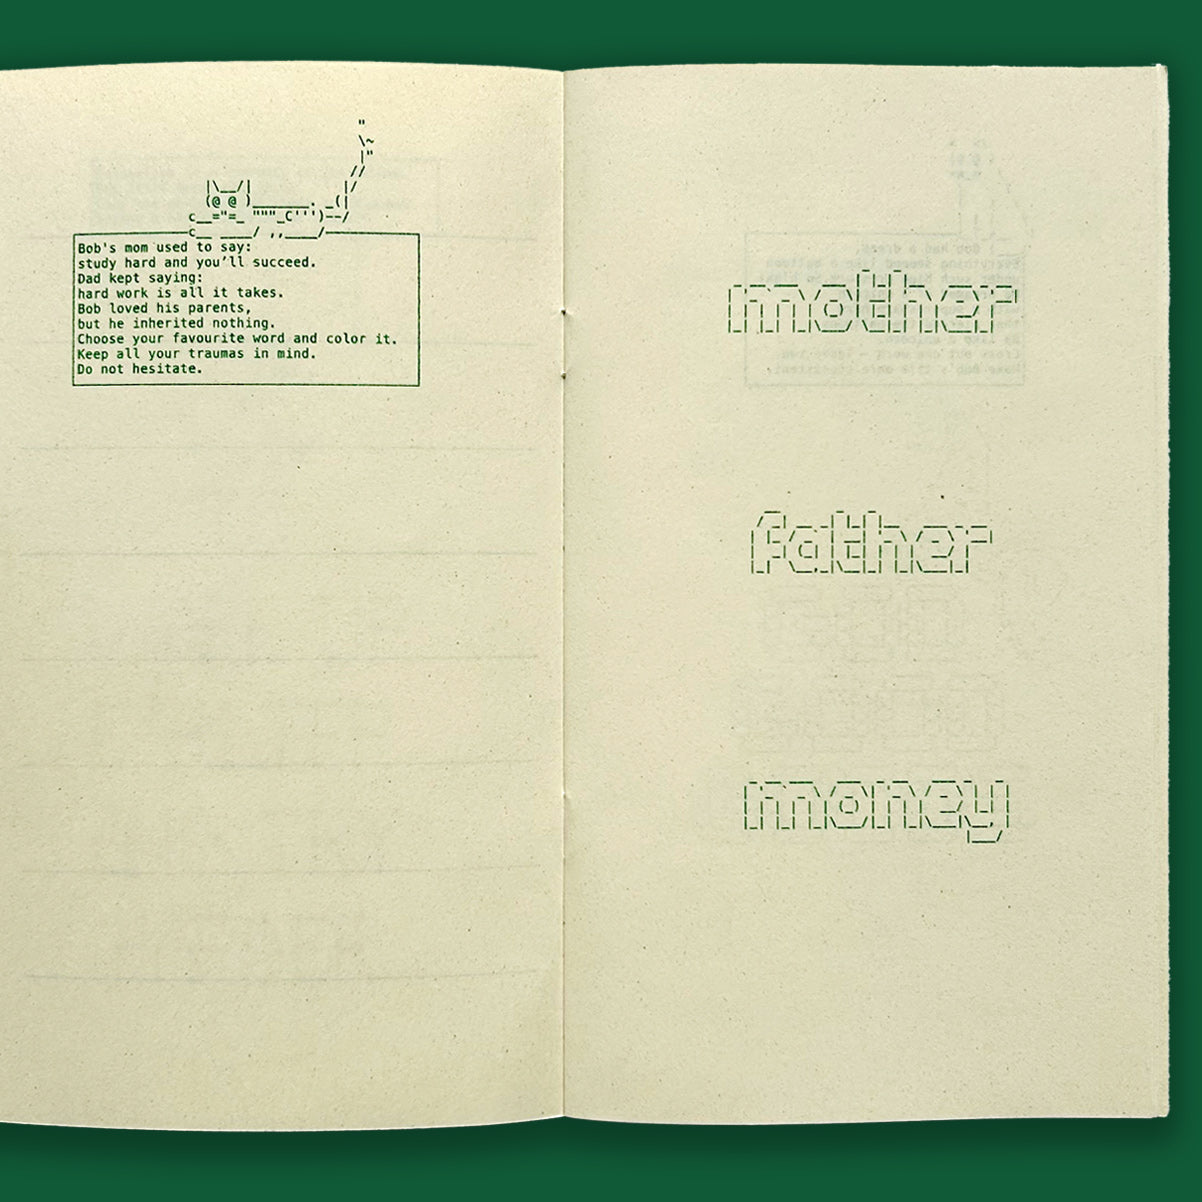 Bob's mom used to say:
study hard and you’ll succeed.
Dad kept saying:
hard work is all it takes.
Bob loved his parents,
but he inherited nothing.
Choose your favourite word and color it.
Keep all your traumas in mind.
Do not hesitate.
mother
father
money